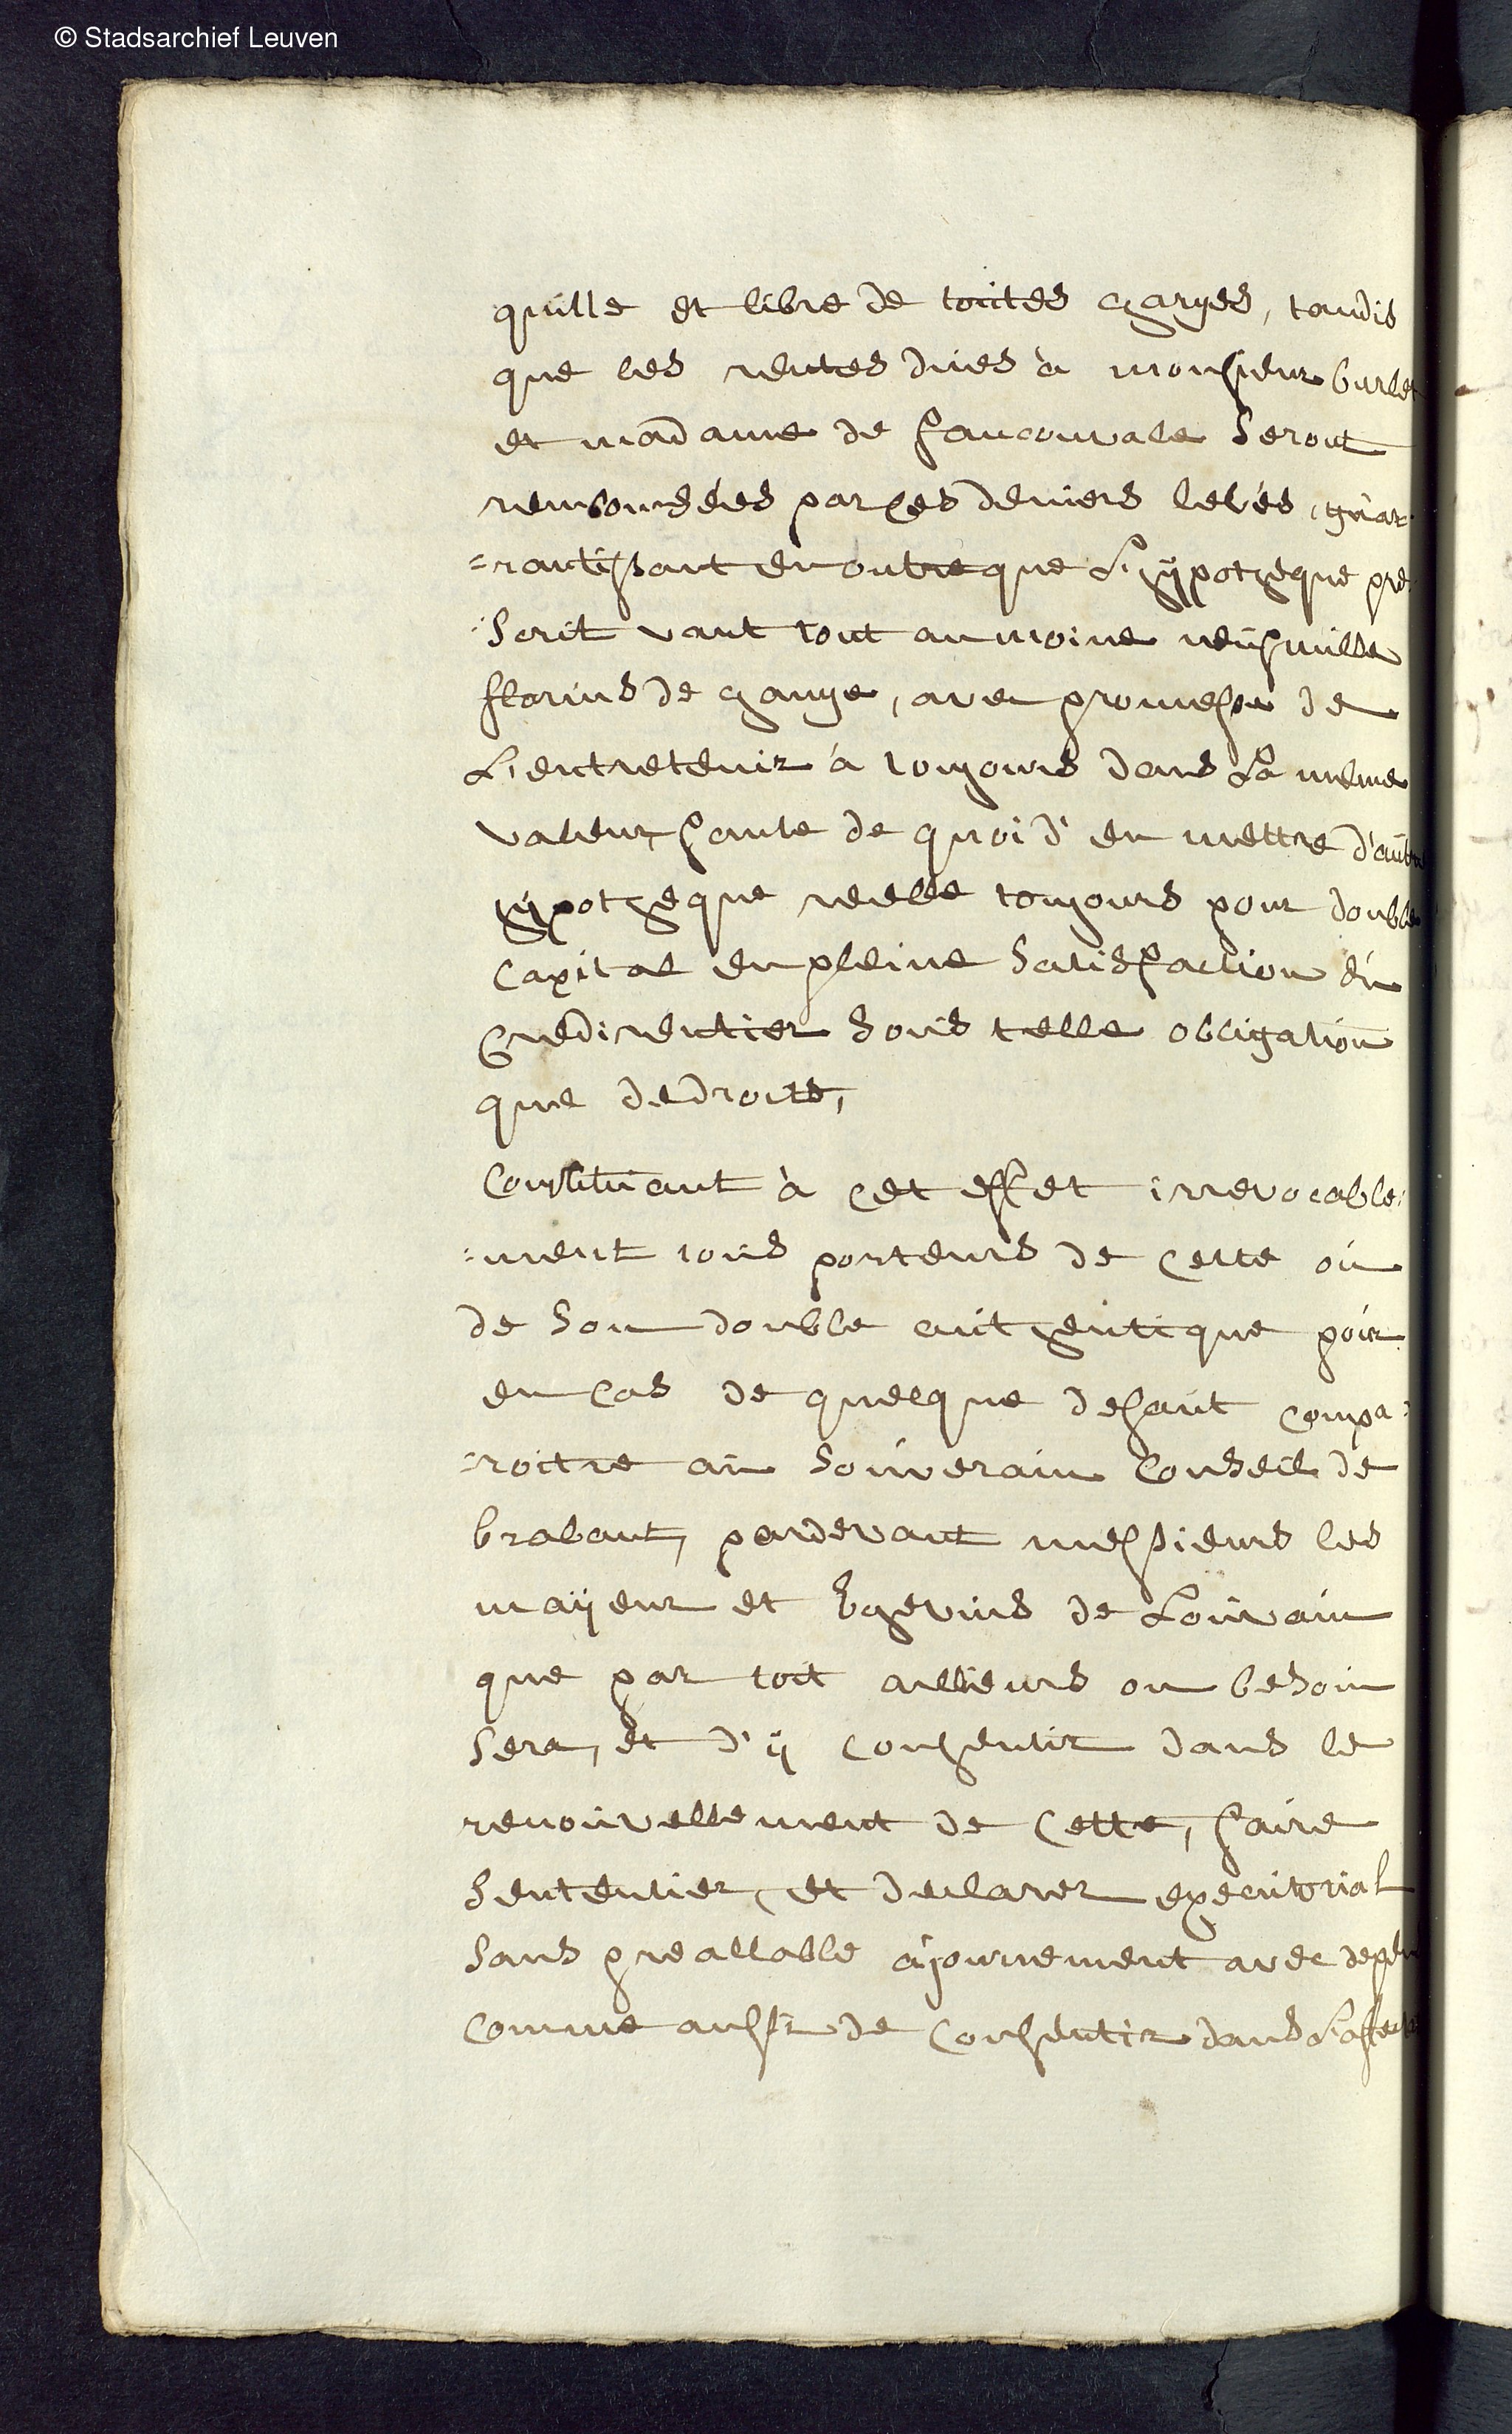 © Stadsarchief Leuven
quille et libre de toutes charges, tandis
que les rentes dues à monsieur burlet
et madame de fauconvale seront
remboursées par ces deniers levés, guar
=rantissant en outre que L'hÿpotheque pre
=scrit vaut tout au moine neuf mille
florins de change, avec promesse de
L'entretenir à toujours dans La meme
valeur, faute de quoi d'en mettre d'autre
hÿpotheque reelle toujours pour double
capital en pleine satisfaction du
Credirentier sous telle obligation
que de droits,
Constituant à cet effet irrevocable=
=ment tous porteurs de cette ou
de son double authentique pour
en cas de quelque defaut compa=
=roitre au souverain Conseil de
brabant, pardevant messieurs les
maÿeur et Echevins de Louvain
que par tout allieurs ou besoin
sera, et d'ÿ consentir dans le
renouvellement de cette, faire
sententier, et declarer executorial
sans preallable ajournement avec depen
comme aussi de consentir dans L'affecta